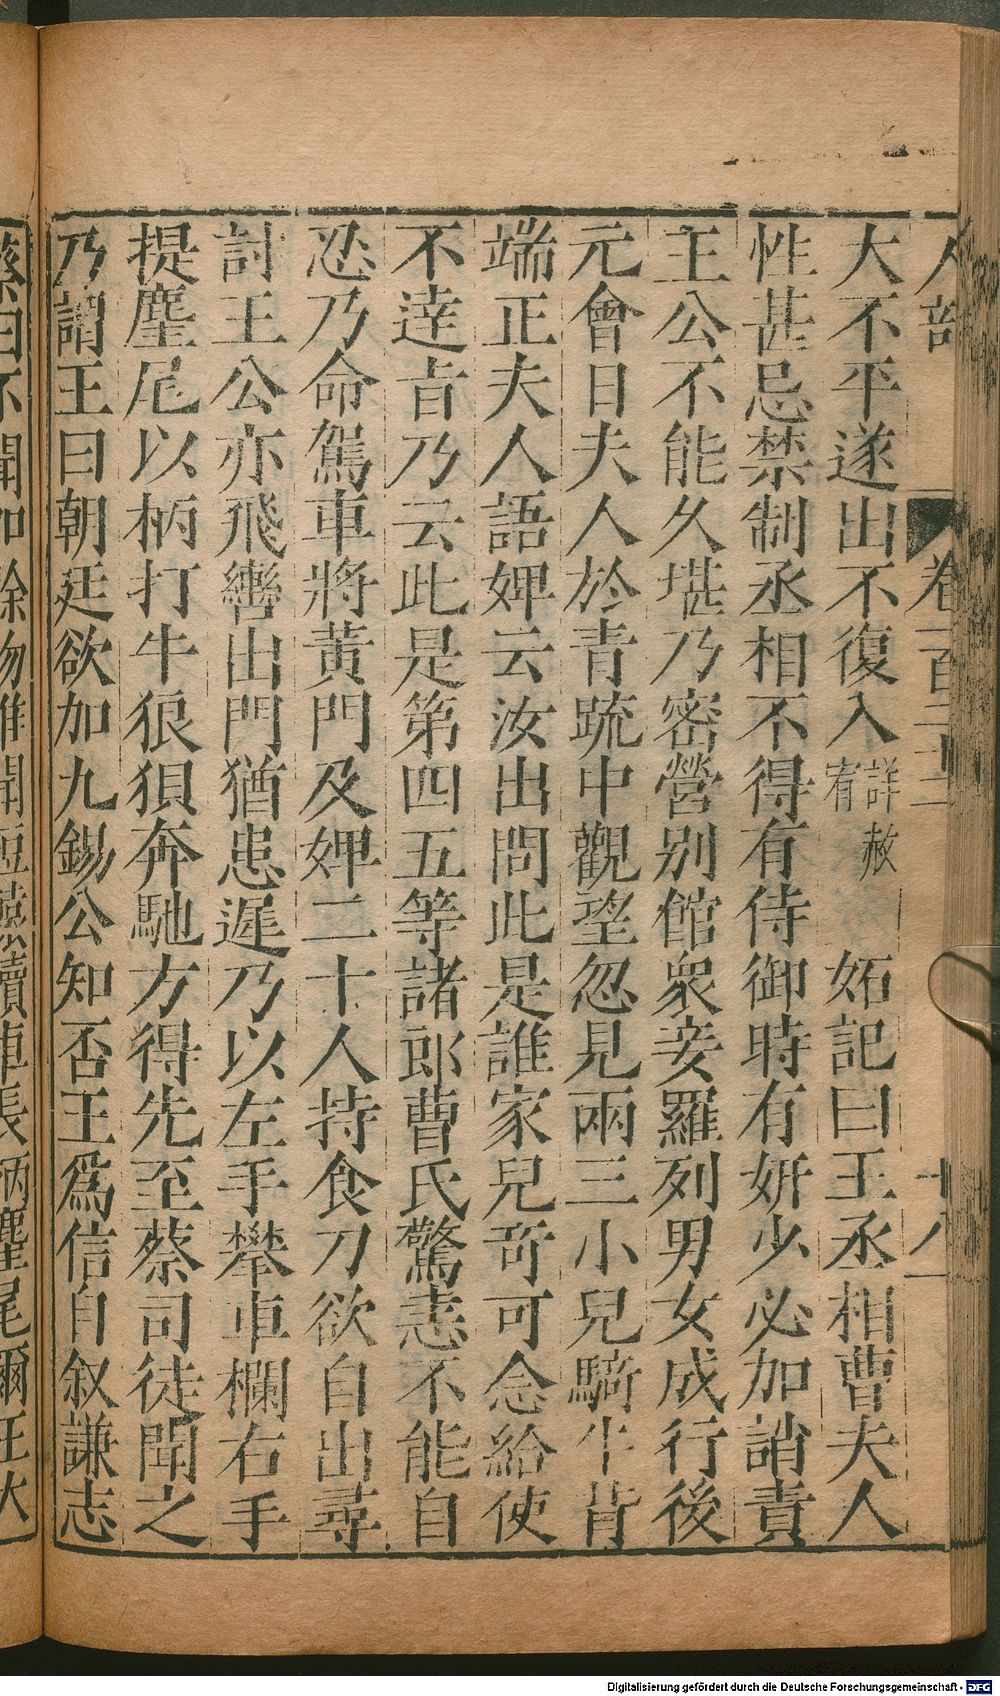 人部 卷一百二十二 十八
大不平遂出不復入詳赦宥 妬記曰王丞相曹夫人
性甚忌禁制丞相不得有侍御時有妍少必加誚責
王公不能久堪乃密營別館衆妾羅列男女成行後
元會日夫人於青疏中觀望忽見兩三小兒騎牛皆
端正夫人語婢云汝出問此是誰家兒奇可念給使
不達旨乃云此是第四五等諸郎曹氏驚恚不能自
忍乃命駕車將黃門及婢二十人持食刀欲自出尋
討王公亦飛轡出門猶患遲乃以左手攀車欄右手
提麈尾以柄打牛狼狽奔馳方得先至蔡司徒聞之
乃謂王曰朝廷欲加九錫公知否王爲信自叙謙志
蔡曰不聞加餘物惟聞短轅犢車長柄麈尾爾王大
Digitalisierung gefördert durch die Deutsche Forschungsgemeinschaft - DFG